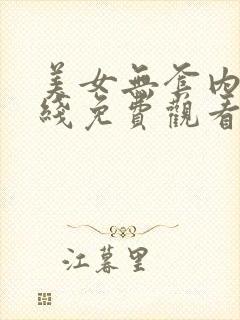 美女無套內
綫免費觀看
江暮里